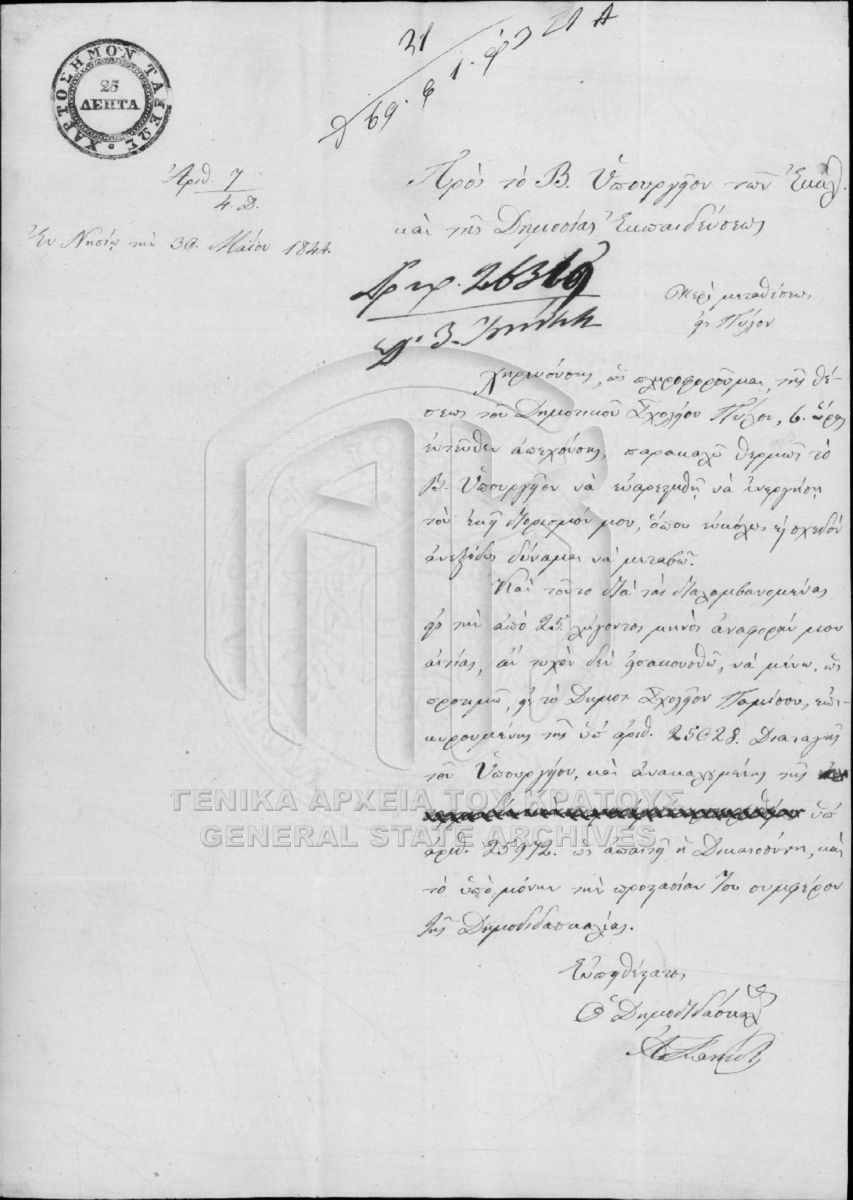 ΧΑΡΤΟΣΗΜΟΝ ΤΑΞΕΩΣ
25
ΛΕΠΤΑ
31
69
Ἀριθ. 7
4. Δ.
Ἐν Νησίῳ τὴν 30 Μαΐου 1844.
Πρὸς τὸ Β. Ὑπουργεῖον τῶν Ἐκκλ.
καὶ τῆς Δημοσίας Ἐκπαιδεύσεως
Περὶ μεταθέσεως
εἰς Πύλον
Χηρευούσης, ὡς πληροφοροῦμαι, τῆς θέ-
σεως τοῦ Δημοτικοῦ Σχολείου Πύλου, 6. ὥρας
ἐντεῦθεν ἀπεχούσης, παρακαλῶ θερμῶς τὸ
Β. Ὑπουργεῖον νὰ εὐαρεστηθῇ νὰ ἐνεργήσῃ
τὸν ἐκεῖ διορισμόν μου, ὅπου εὐκόλως ἢ σχεδὸν
ἀνεξόδως δύναμαι νὰ μεταβῶ.
Καὶ τοῦτο διὰ τὰς διαλαμβανομένας
εἰς τὴν ἀπὸ 25 λήγοντος μηνὸς ἀναφοράν μου
αἰτίας, ἂν τυχὸν δὲν εἰσακουσθῶ, νὰ μένω, ὡς
προτιμῶ, εἰς τὸ Δημοτ. Σχολεῖον Παμίσου, ἐπι-
κυρουμένης τῆς ὑπ' ἀριθ. 25028. Διαταγῆς
τοῦ Ὑπουργείου, καὶ ἀνακαλουμένης τῆς
ὑπ'
ἀριθ. 25972. ὡς ἀπαιτεῖ ἡ Δικαιοσύνη, καὶ
τὸ ὑπὸ μόνην τὴν προστασίαν του συμφέρον
τῆς Δημοδιδασκαλίας.
Εὐπειθέστατος
Ὁ Δημοδιδάσκαλος
ΓΕΝΙΚΑ ΑΡΧΕΙΑ ΤΟΥ ΚΡΑΤΟΥΣ
GENERAL STATE ARCHIVES